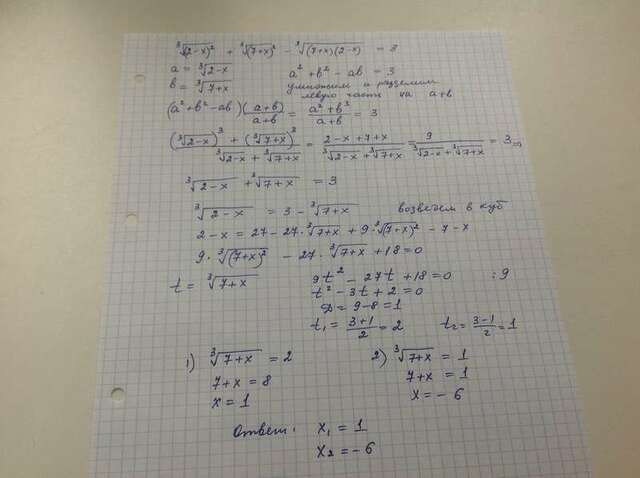 ∛(2-x)² + ∛(7+x)² - ∛(7+x)(2-x) = 3
a = ∛2-x a² + b² - ab = 3
b = ∛7+x умножим и разделим
левую часть на a+b
(a² + b² - ab)(a+b)/(a+b) = (a³ + b³)/(a+b) = 3
((∛2-x)³ + (∛7+x)³)/(∛2-x + ∛7+x) = (2-x+7+x)/(∛2-x + ∛7+x) = 9/(∛2-x + ∛7+x) = 3 ⇒
∛2-x + ∛7+x = 3
∛2-x = 3 - ∛7+x возведем в куб
2-x = 27 - 27·∛7+x + 9·∛(7+x)² - 7 - x
9·∛(7+x)² - 27·∛7+x + 18 = 0
t = ∛7+x 9t² - 27t + 18 = 0 :9
t² - 3t + 2 = 0
D = 9-8 = 1
t₁ = (3+1)/2 = 2 t₂ = (3-1)/2 = 1
1) ∛7+x = 2 2) ∛7+x = 1
7+x = 8 7+x = 1
x = 1 x = -6
Ответ: x₁ = 1
x₂ = -6